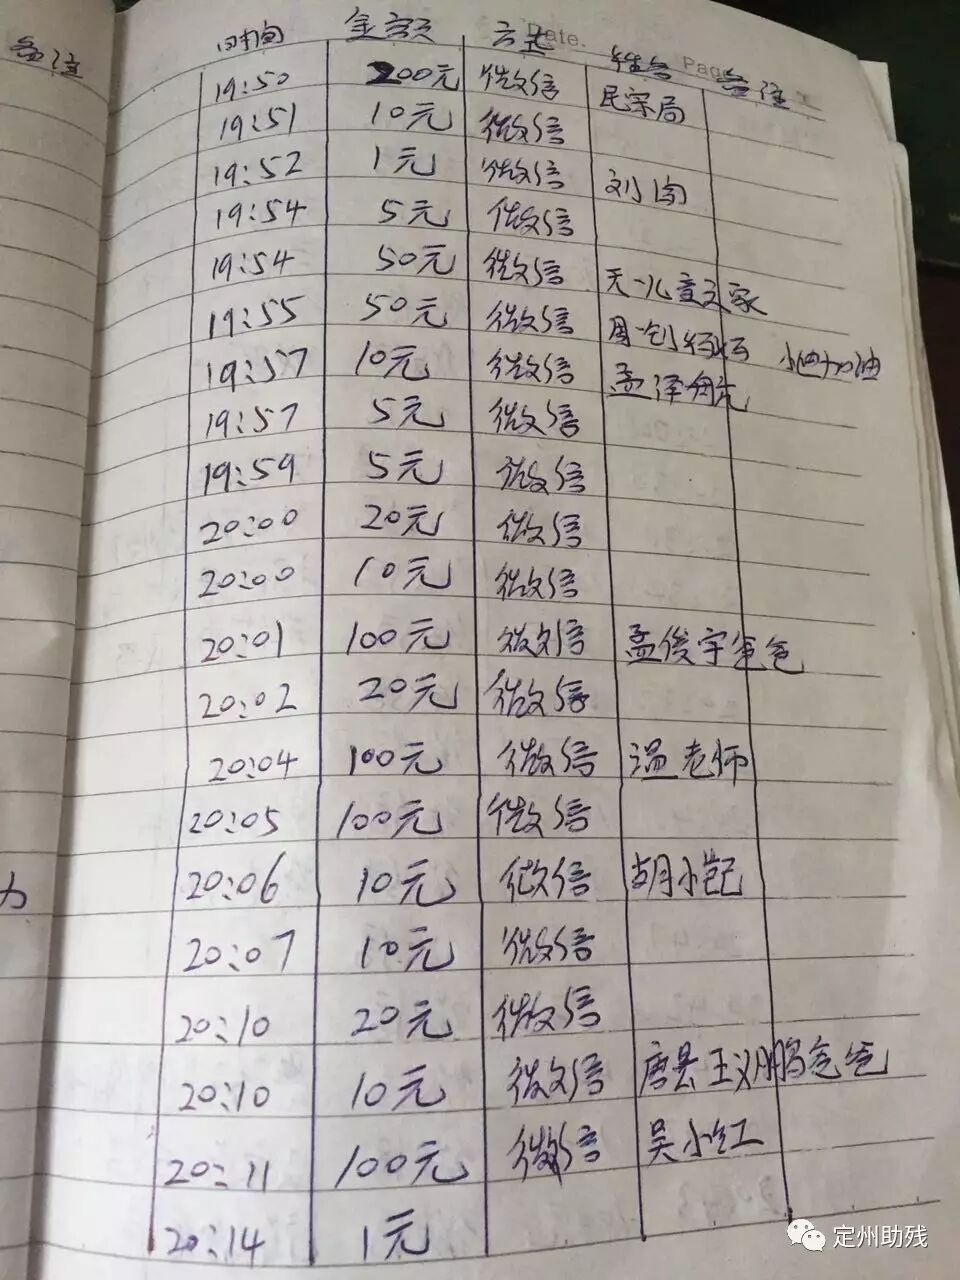 备注
时间 金额 方式 姓名 备注
Date.
Pag
19:50 200元 微信 民宗局
19:51 10元 微信
19:52 1元 微信 刘闯
19:54 5元 微信
19:54 50元 微信 天一儿童之家
19:55 50元 微信 加油
19:57 10元 微信 孟泽航
19:57 5元 微信
19:59 5元 微信
20:00 20元 微信
20:00 10元 微信
20:01 100元 微信 孟俊宇爸爸
20:02 20元 微信
20:04 100元 微信 温老师
20:05 100元 微信
20:06 10元 微信
20:07 10元 微信
20:10 20元 微信
20:10 10元 微信 唐县王义鹏爸爸
20:11 100元 微信 吴小红
20:14 1元
定州助残